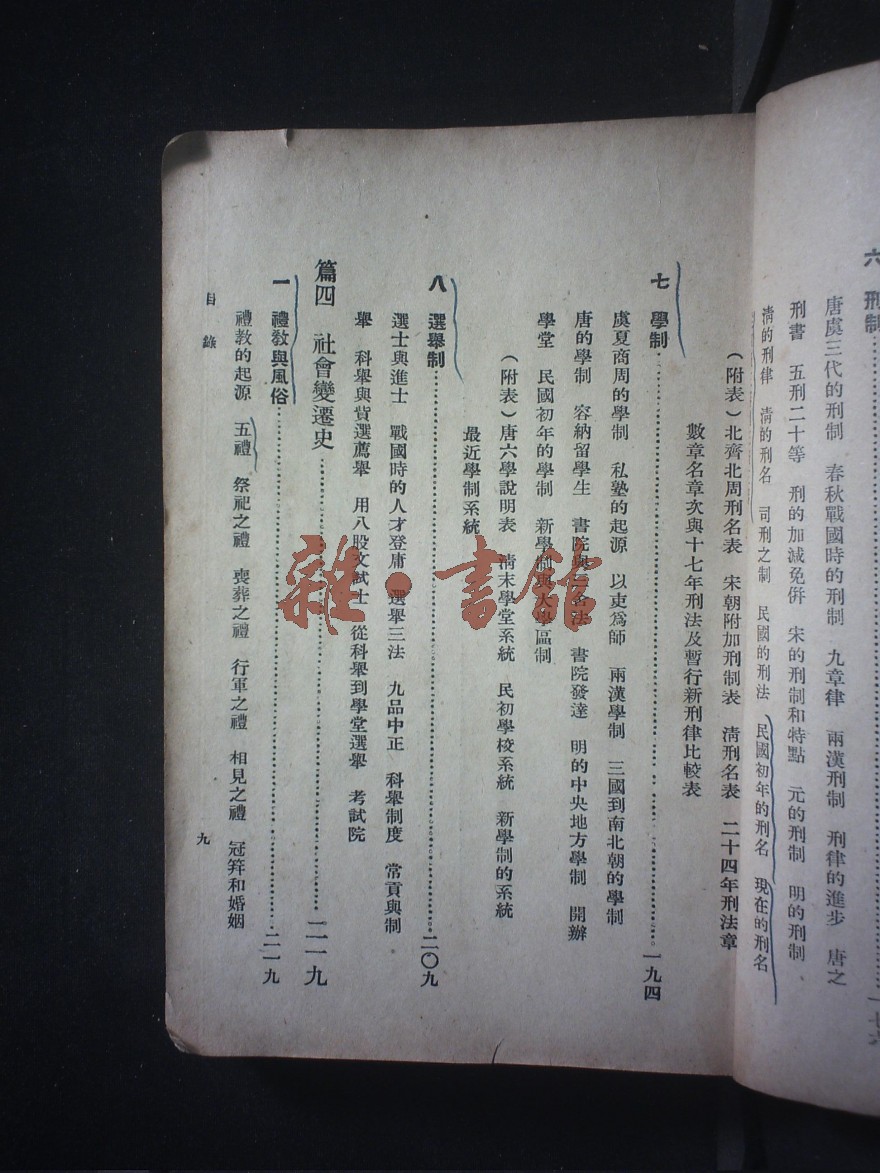 六 刑制
唐虞三代的刑制 春秋戰國時的刑制 九章律 兩漢刑制 刑律的進步 唐之
刑書 五刑二十等 刑的加減免併 宋的刑制和特點 元的刑制 明的刑制
清的刑律 清的刑名 司刑之制 民國的刑法 民國初年的刑名 現在的刑名
(附表)北齊北周刑名表 宋朝附加刑制表 清刑名表 二十四年刑法章
數章名章次與十七年刑法及暫行新刑律比較表
七 學制 一九四
虞夏商周的學制 私塾的起源 以吏爲師 兩漢學制 三國到南北朝的學制
唐的學制 容納留學生 書院與三舍法 書院發達 明的中央地方學制 開辦
學堂 民國初年的學制 新學制與大學區制
(附表)唐六學說明表 清末學堂系統 民初學校系統 新學制的系統
最近學制系統
八 選舉制 二〇九
選士與進士 戰國時的人才登庸 選舉三法 九品中正 科舉制度 常貢與制
舉 科舉與貲選薦舉 用八股文試士 從科舉到學堂選舉 考試院
篇四 社會變遷史 二一九
一 禮敎與風俗 二一九
禮敎的起源 五禮 祭祀之禮 喪葬之禮 行軍之禮 相見之禮 冠笄和婚姻
目錄
九
雜·書館